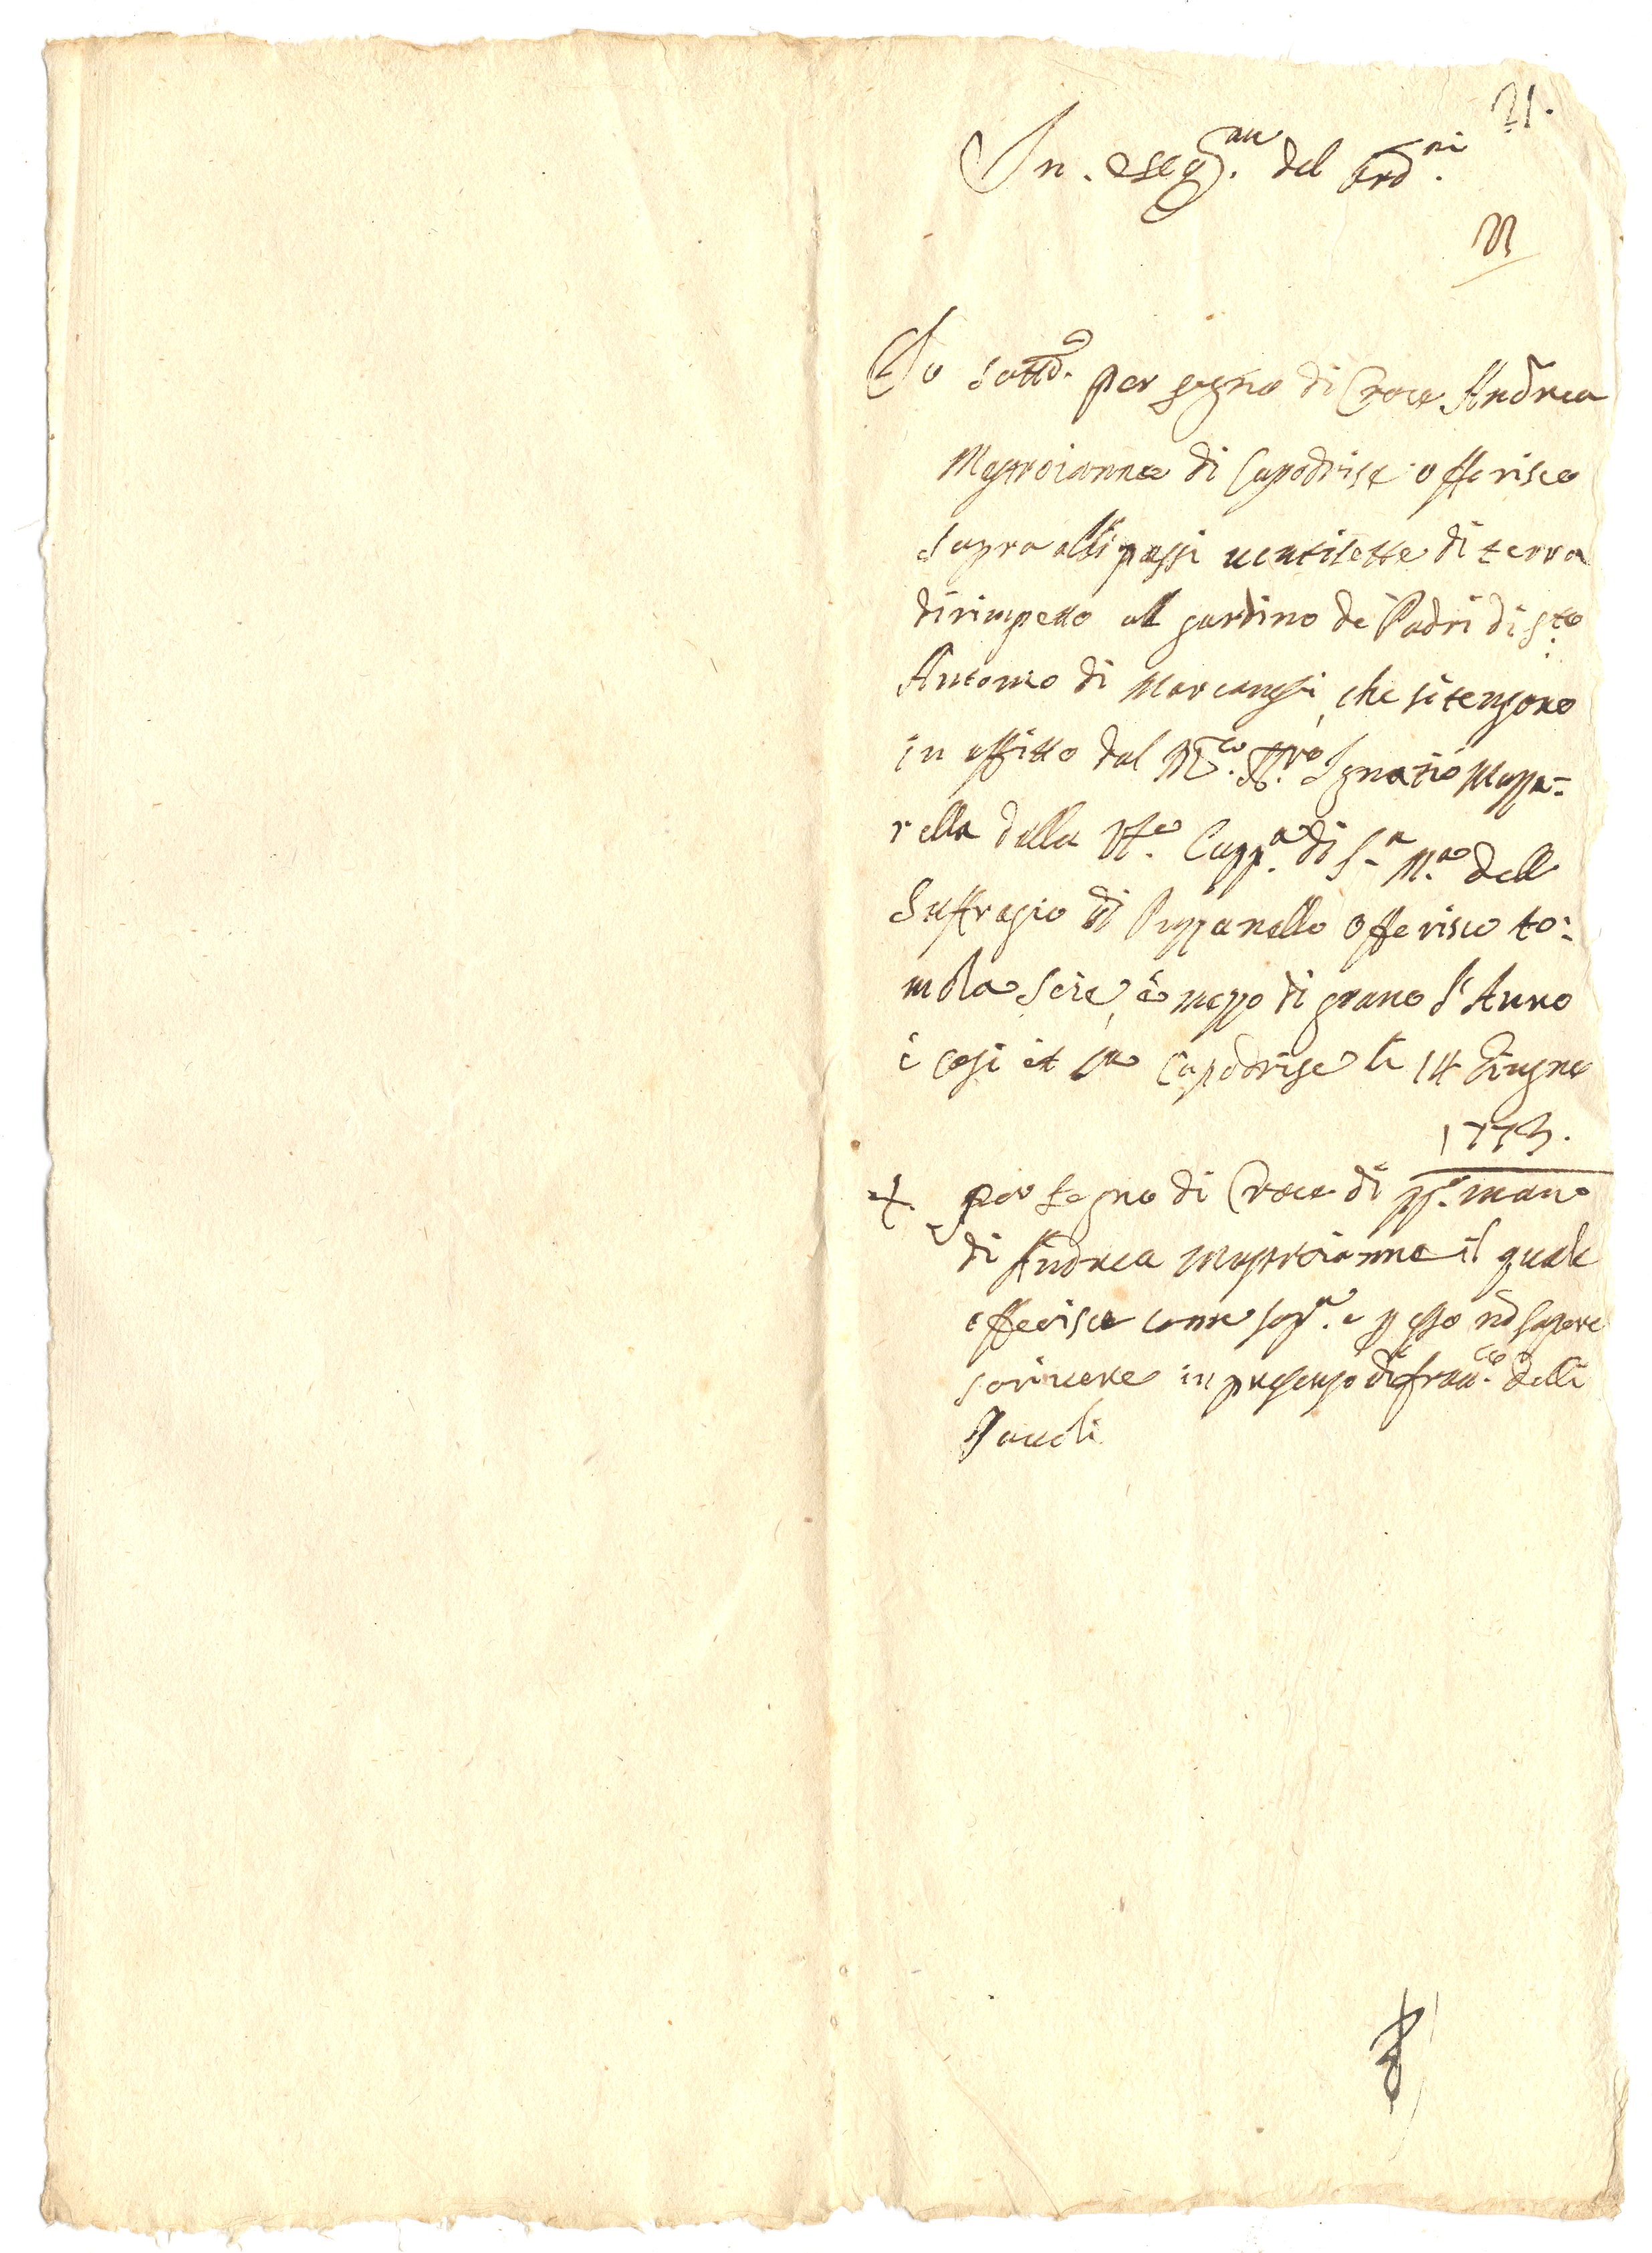 21.
In eseq.ne del ord.ni
21
Io sottto. per segno di Croce Andrea
Mastroianne di Capodrise offerisco
sopra alli passi ventisette di terra
dirimpetto al giardino de Padri di Sto
Antonio di Marcangi, che si tengono
in affitto dal Mco. Ignazio Mazza=
rella dalla Cappa. di Sa. Ma. dell
Suffragio di Puzzanello offerisco to=
mola seie, e mezzo di grano l'Anno
e cosi et Capodrise li 14 Giugno
1773.
+ per segno di Croce di pp.a mano
di Andrea Mastroianne il quale
offerisce come sopr.a e p esso nō sapere
scrivere in presenza di Fran.co delli
Paueli